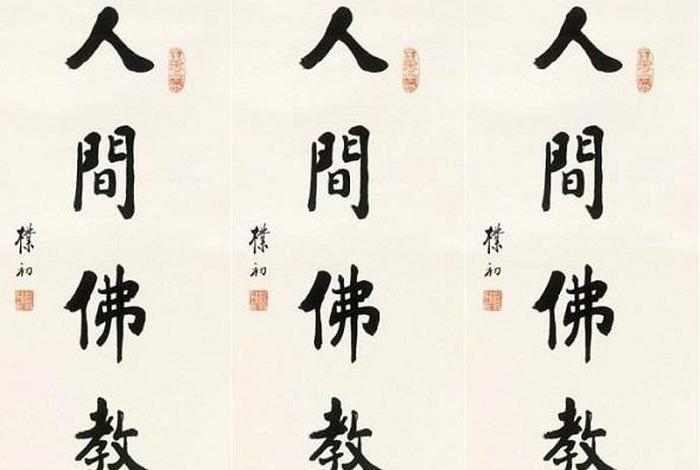 人間佛教
樸初
人間佛教
樸初
人間佛教
樸初